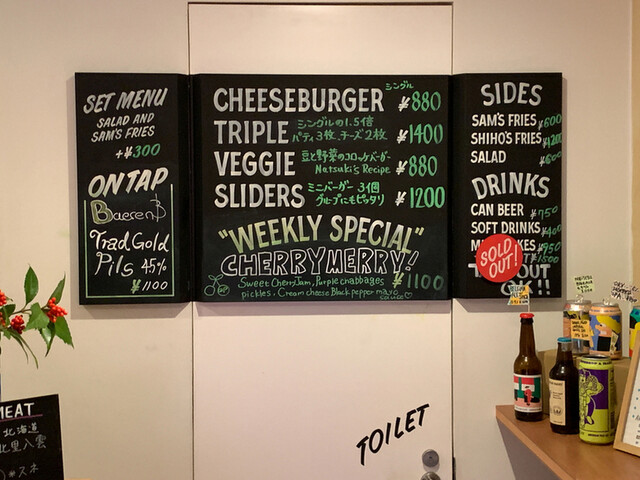 SET MENU
SALAD AND
SAM'S FRIES
+¥300
ON TAP
Baeren
Trad Gold
Pils 4.5%
¥1100
シングル
CHEESEBURGER ¥880
TRIPLE シングルの1.5倍 ¥1400
パティ3枚、チーズ2枚
VEGGIE 豆と野菜のコロッケバーガー ¥880
Natsuki's Recipe
SLIDERS ミニバーガー 3個 ¥1200
グループにもピッタリ
"WEEKLY SPECIAL"
CHERRY MERRY!
Sweet Cherry Jam, Purple cabbages ¥1100
pickles, Cream cheese Black pepper mayo
SIDES
SAM'S FRIES ¥600
SHIHO'S FRIES ¥1200
SALAD ¥600
DRINKS
CAN BEER ¥750
SOFT DRINKS ¥400
¥950
¥1500
SOLD
OUT!
OUT
OK!!
TOILET
MEAT
北海道
北里八雲
スネ